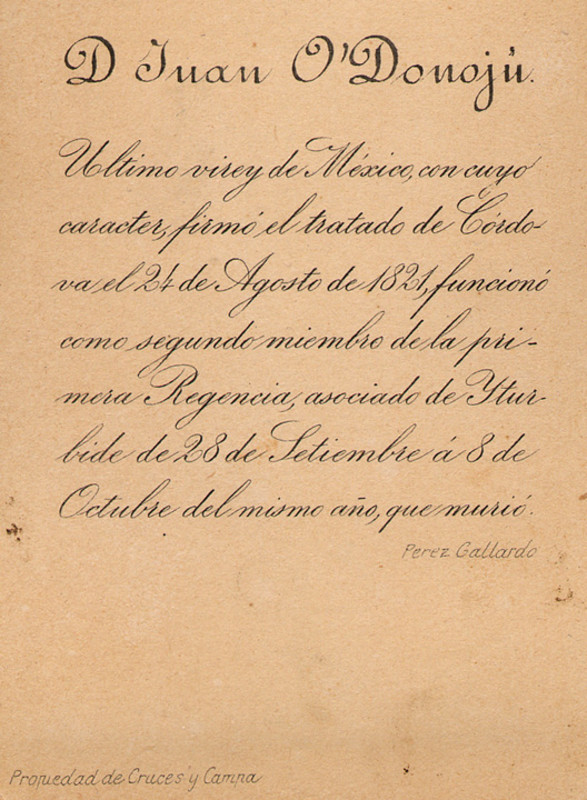 D Juan O'Donojú.
Ultimo virey de México, con cuyo
caracter, firmó el tratado de Córdo-
va el 24 de Agosto de 1821, funcionó
como segundo miembro de la pri-
mera Regencia, asociado de Ytur-
bide de 28 de Setiembre á 8 de
Octubre del mismo año, que murió.
Perez Gallardo
Propiedad de Cruces y Campa